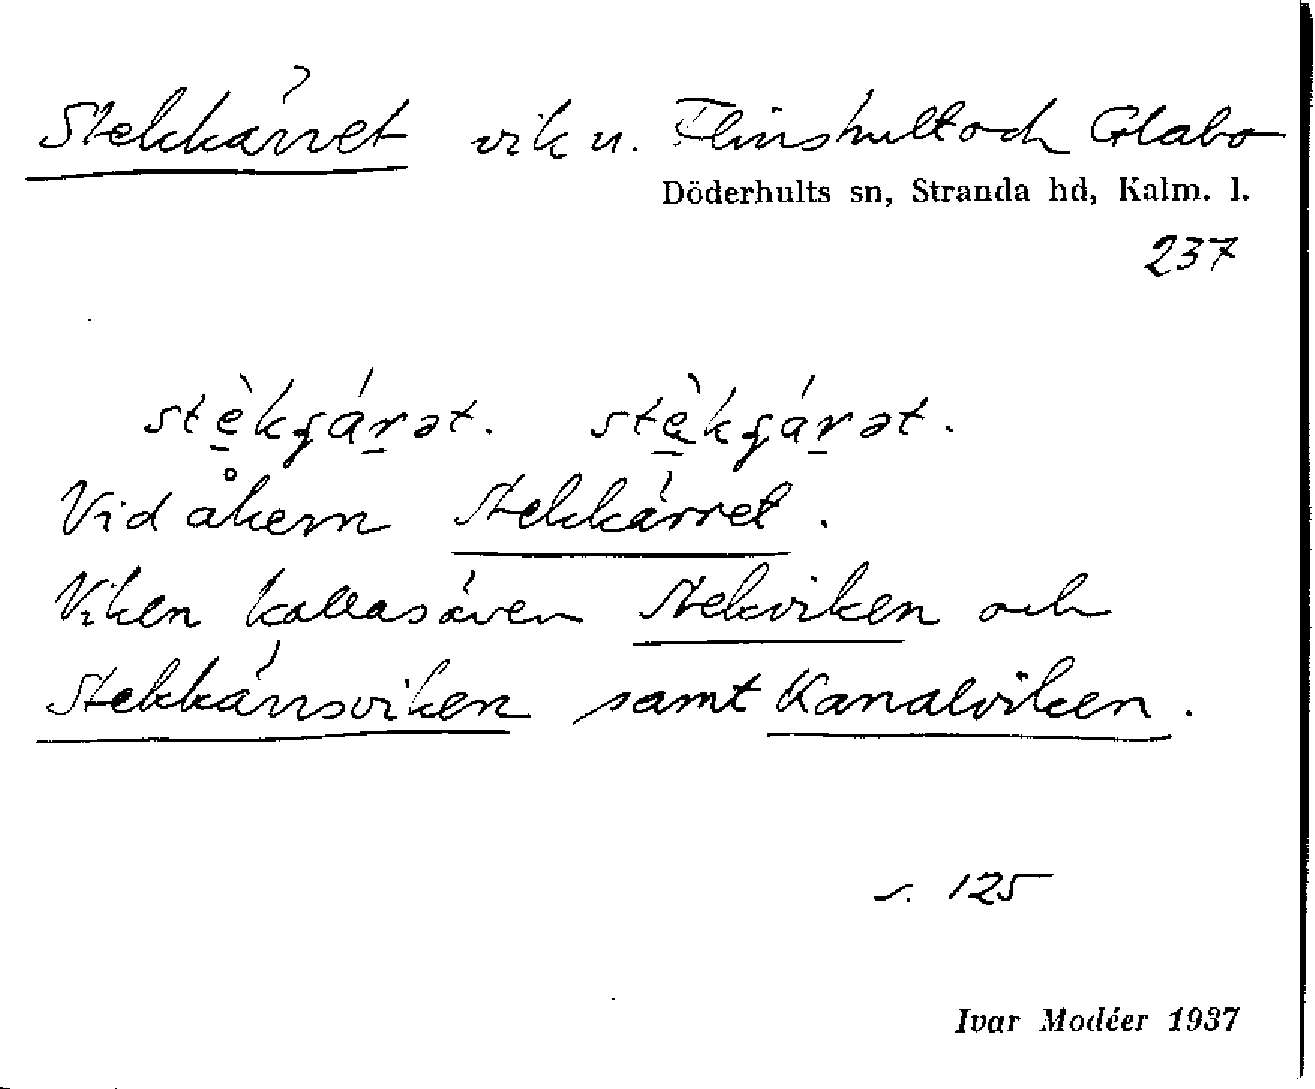 Stekkärret vik u. Flinshult och Glabo
Döderhults sn, Stranda hd, Kalm. l.
237
Vid åkern Stekkärret.
Viken kallas även Stekviken och
Stekkärrsviken samt Kanalviken.
s. 125
Ivar Modéer 1937